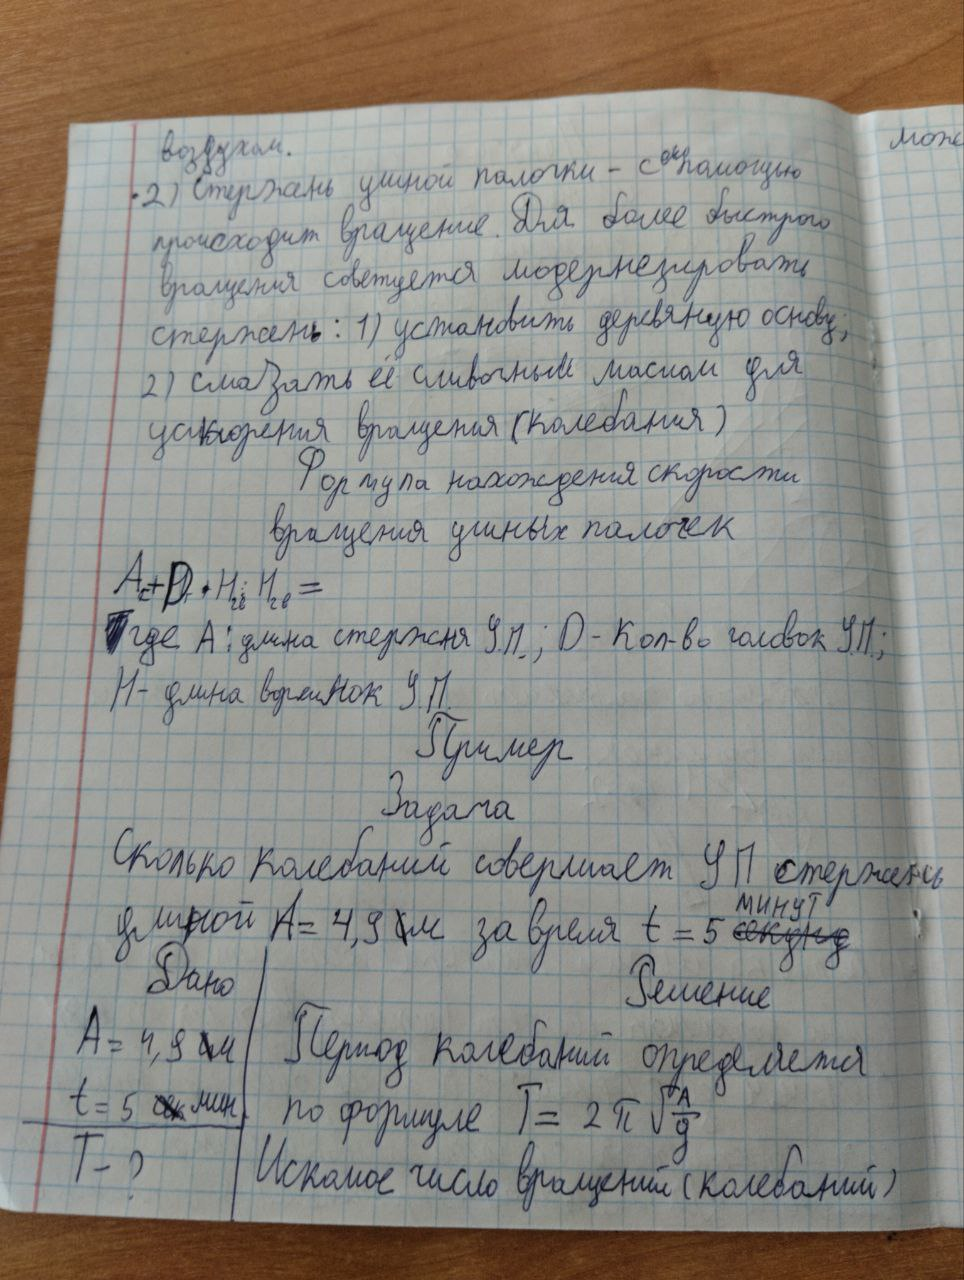 воздухом.
2) Стержень ушной палочки - с его помощью
происходит вращение. Для более быстрого
вращения советуется модернезировать
стержень: 1) установить деревянную основу;
2) смазать её сливочным маслом для
ускорения вращения (колебания)
Формула нахождения скорости
вращения ушных палочек
где А: длина стержня У.П.; D - Кол-во головок У.П.;
Н - длина ворсинок У.П.
Пример
Задача
Сколько колебаний совершает УП стержень
длиной А = 4,9 м за время t = 5 минут
Дано
Решение
А = 4,9 м
t = 5 мин.
Т - ?
Период колебаний определяется
по формуле T = 2π√A/g
Искомое число вращений (колебаний)